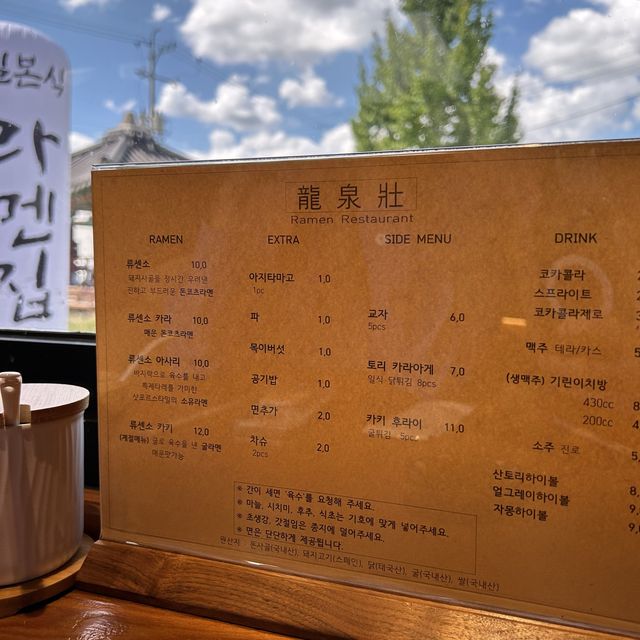 일본식
라멘집
龍泉壯
Ramen Restaurant
RAMEN
류센소 10,0
돼지사골을 장시간 우려낸
진하고 부드러운 돈코츠라멘
류센소 카라 10,0
매운 돈코츠라멘
류센소 아사리 10,0
바지락으로 육수를 내고
특제타래를 가미한
삿포로스타일의 소유라멘
류센소 카키 12,0
(계절메뉴) 굴로 육수를 낸 굴라멘
매운맛가능
EXTRA
아지타마고 1,0
1pc
파 1,0
목이버섯 1,0
공기밥 1,0
면추가 2,0
차슈 2,0
2pcs
SIDE MENU
교자 6,0
5pcs
토리 카라아게 7,0
일식 닭튀김 8pcs
카키 후라이 11,0
굴튀김 5pc
DRINK
코카콜라
스프라이트
코카콜라제로
맥주 테라/카스
(생맥주) 기린이치방
430cc
200cc
소주 진로
산토리하이볼
얼그레이하이볼
자몽하이볼
※ 간이 세면 '육수'를 요청해 주세요.
※ 마늘, 시치미, 후추, 식초는 기호에 맞게 넣어주세요.
※ 초생강, 갓절임은 종지에 덜어주세요.
※ 면은 단단하게 제공됩니다.
원산지 : 돈사골(국내산), 돼지고기(스페인), 닭(태국산), 굴(국내산), 쌀(국내산)